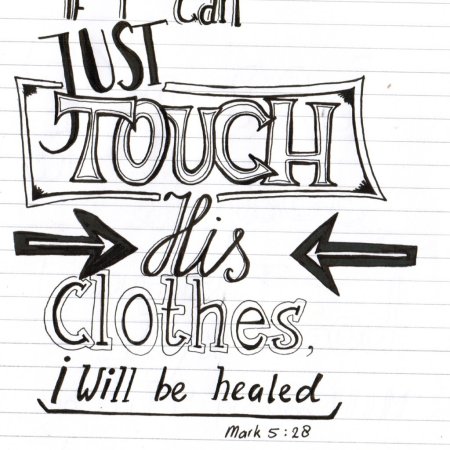 If I can
JUST
TOUCH
His
Clothes,
i Will be healed
Mark 5:28